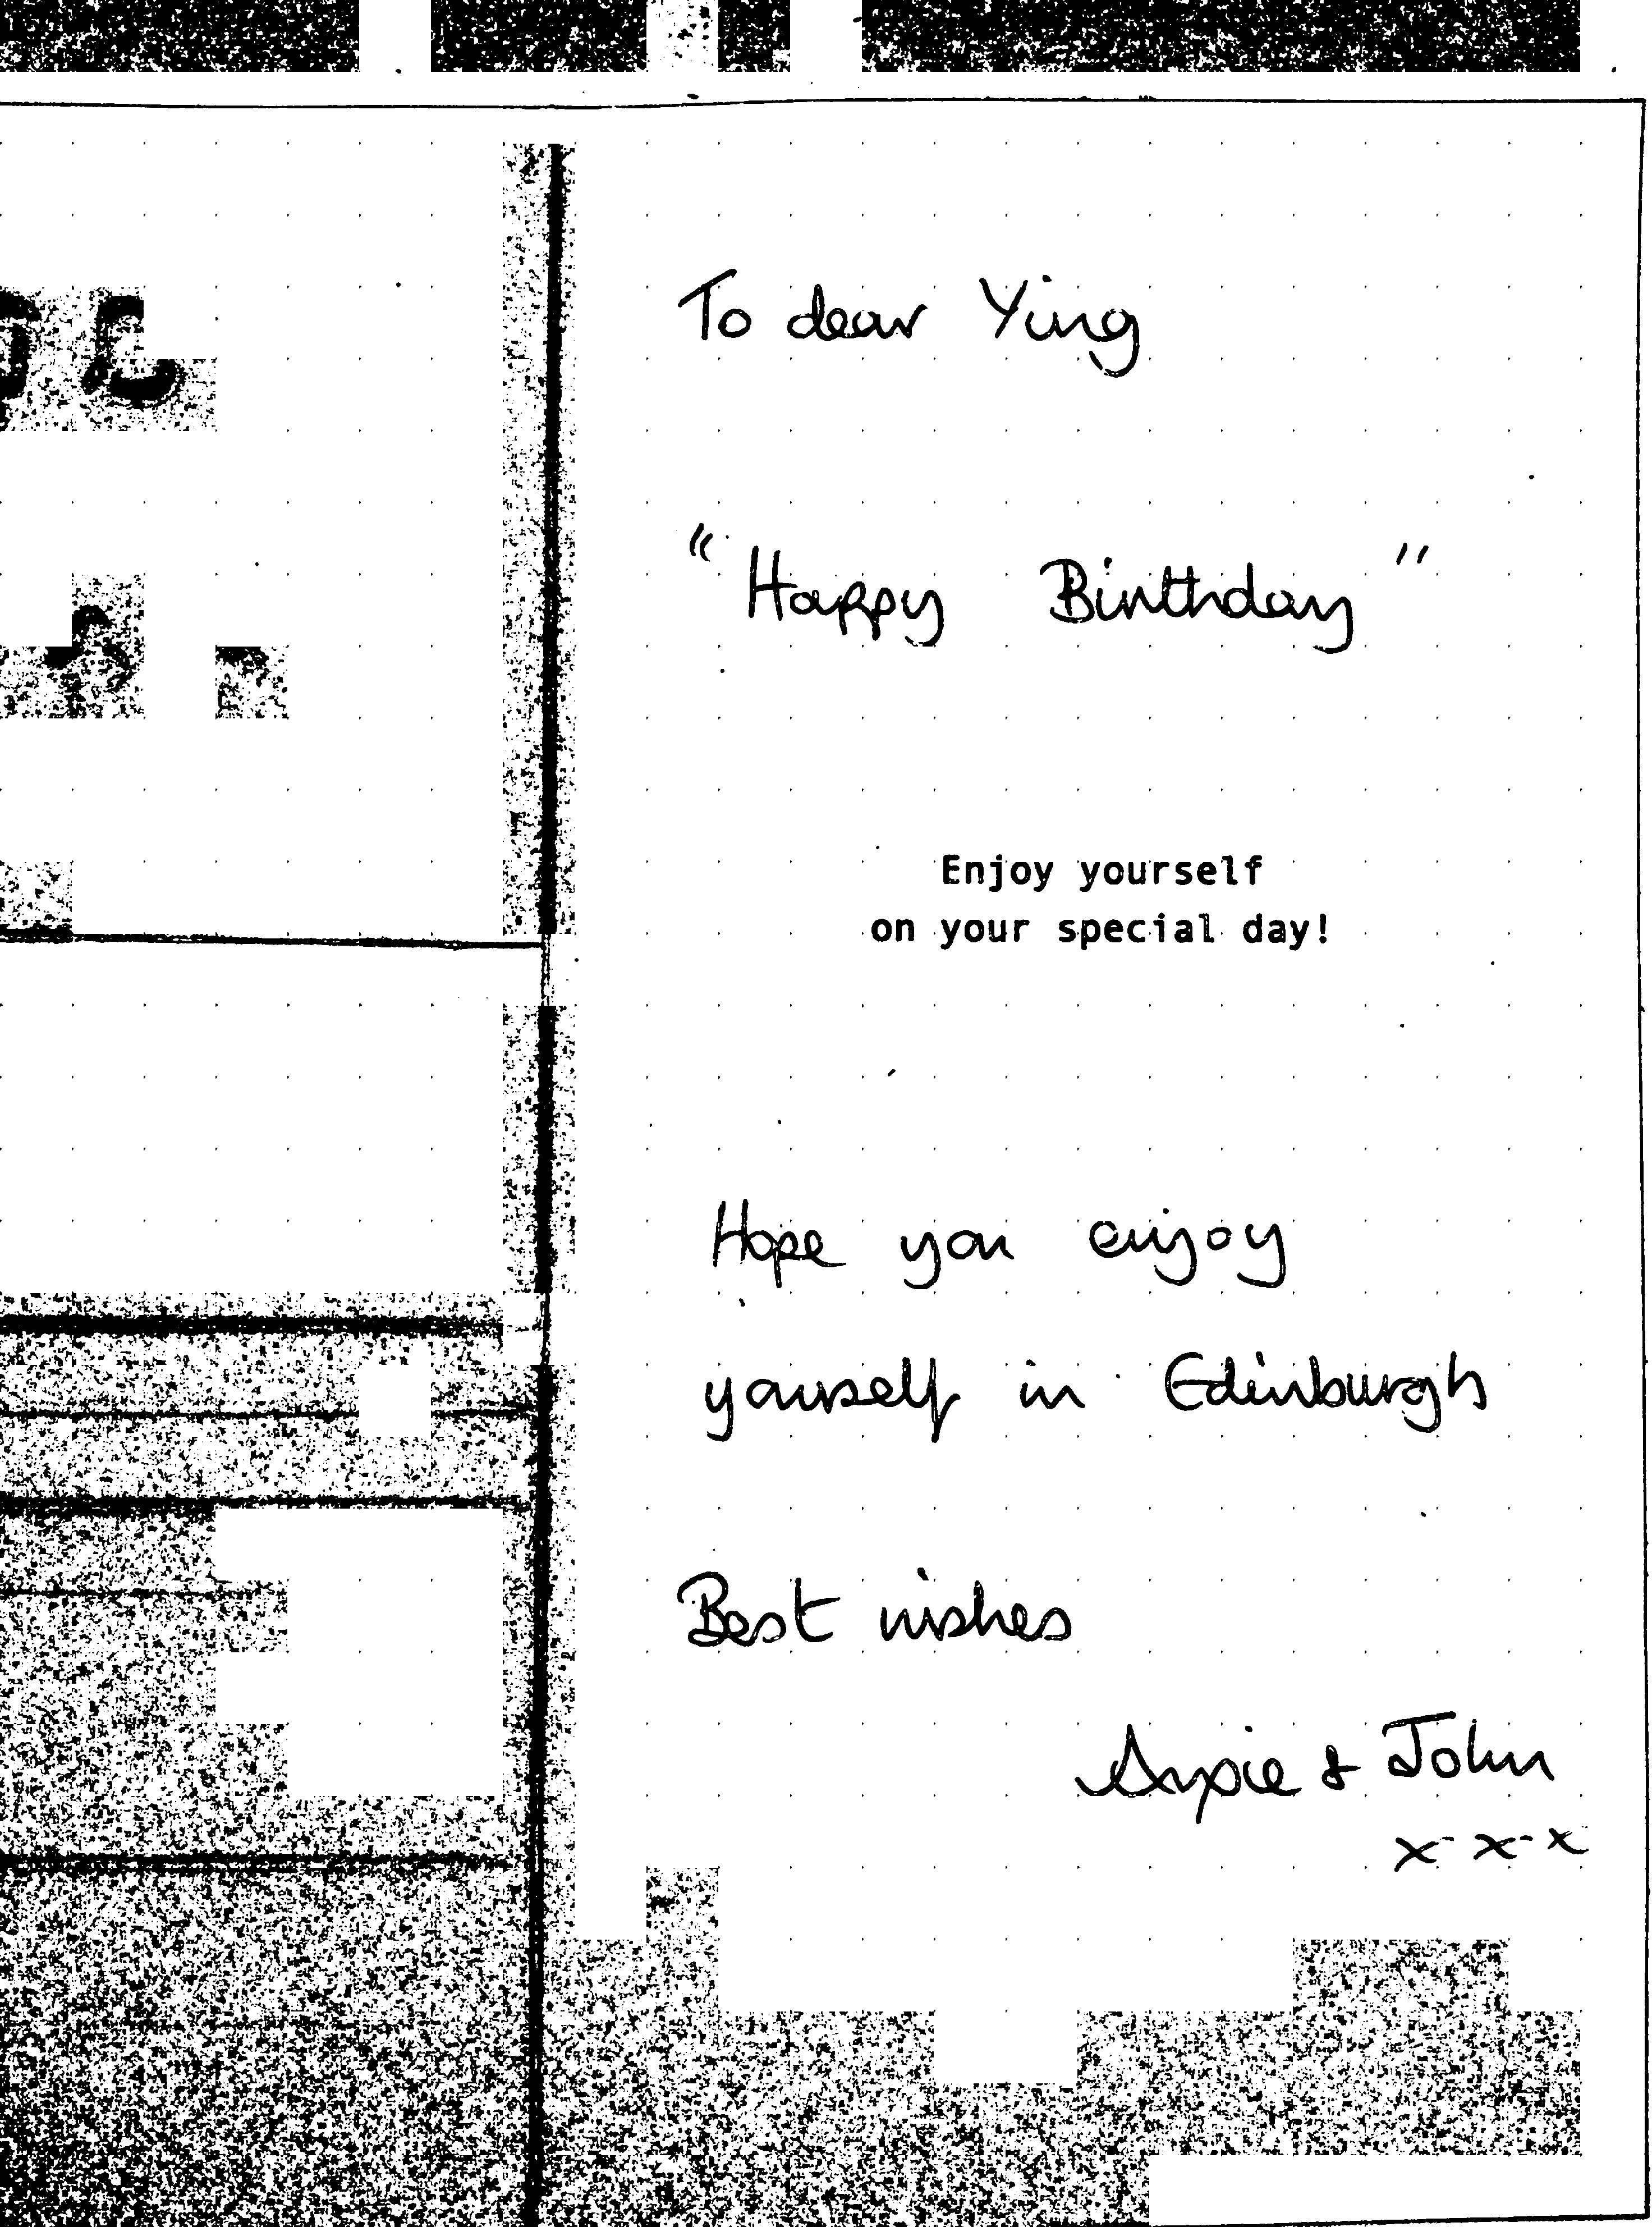 To dear Ying
"Happy Birthday"
Enjoy yourself
on your special day!
Hope you enjoy
yourself in Edinburgh
Best wishes
& John
x x x